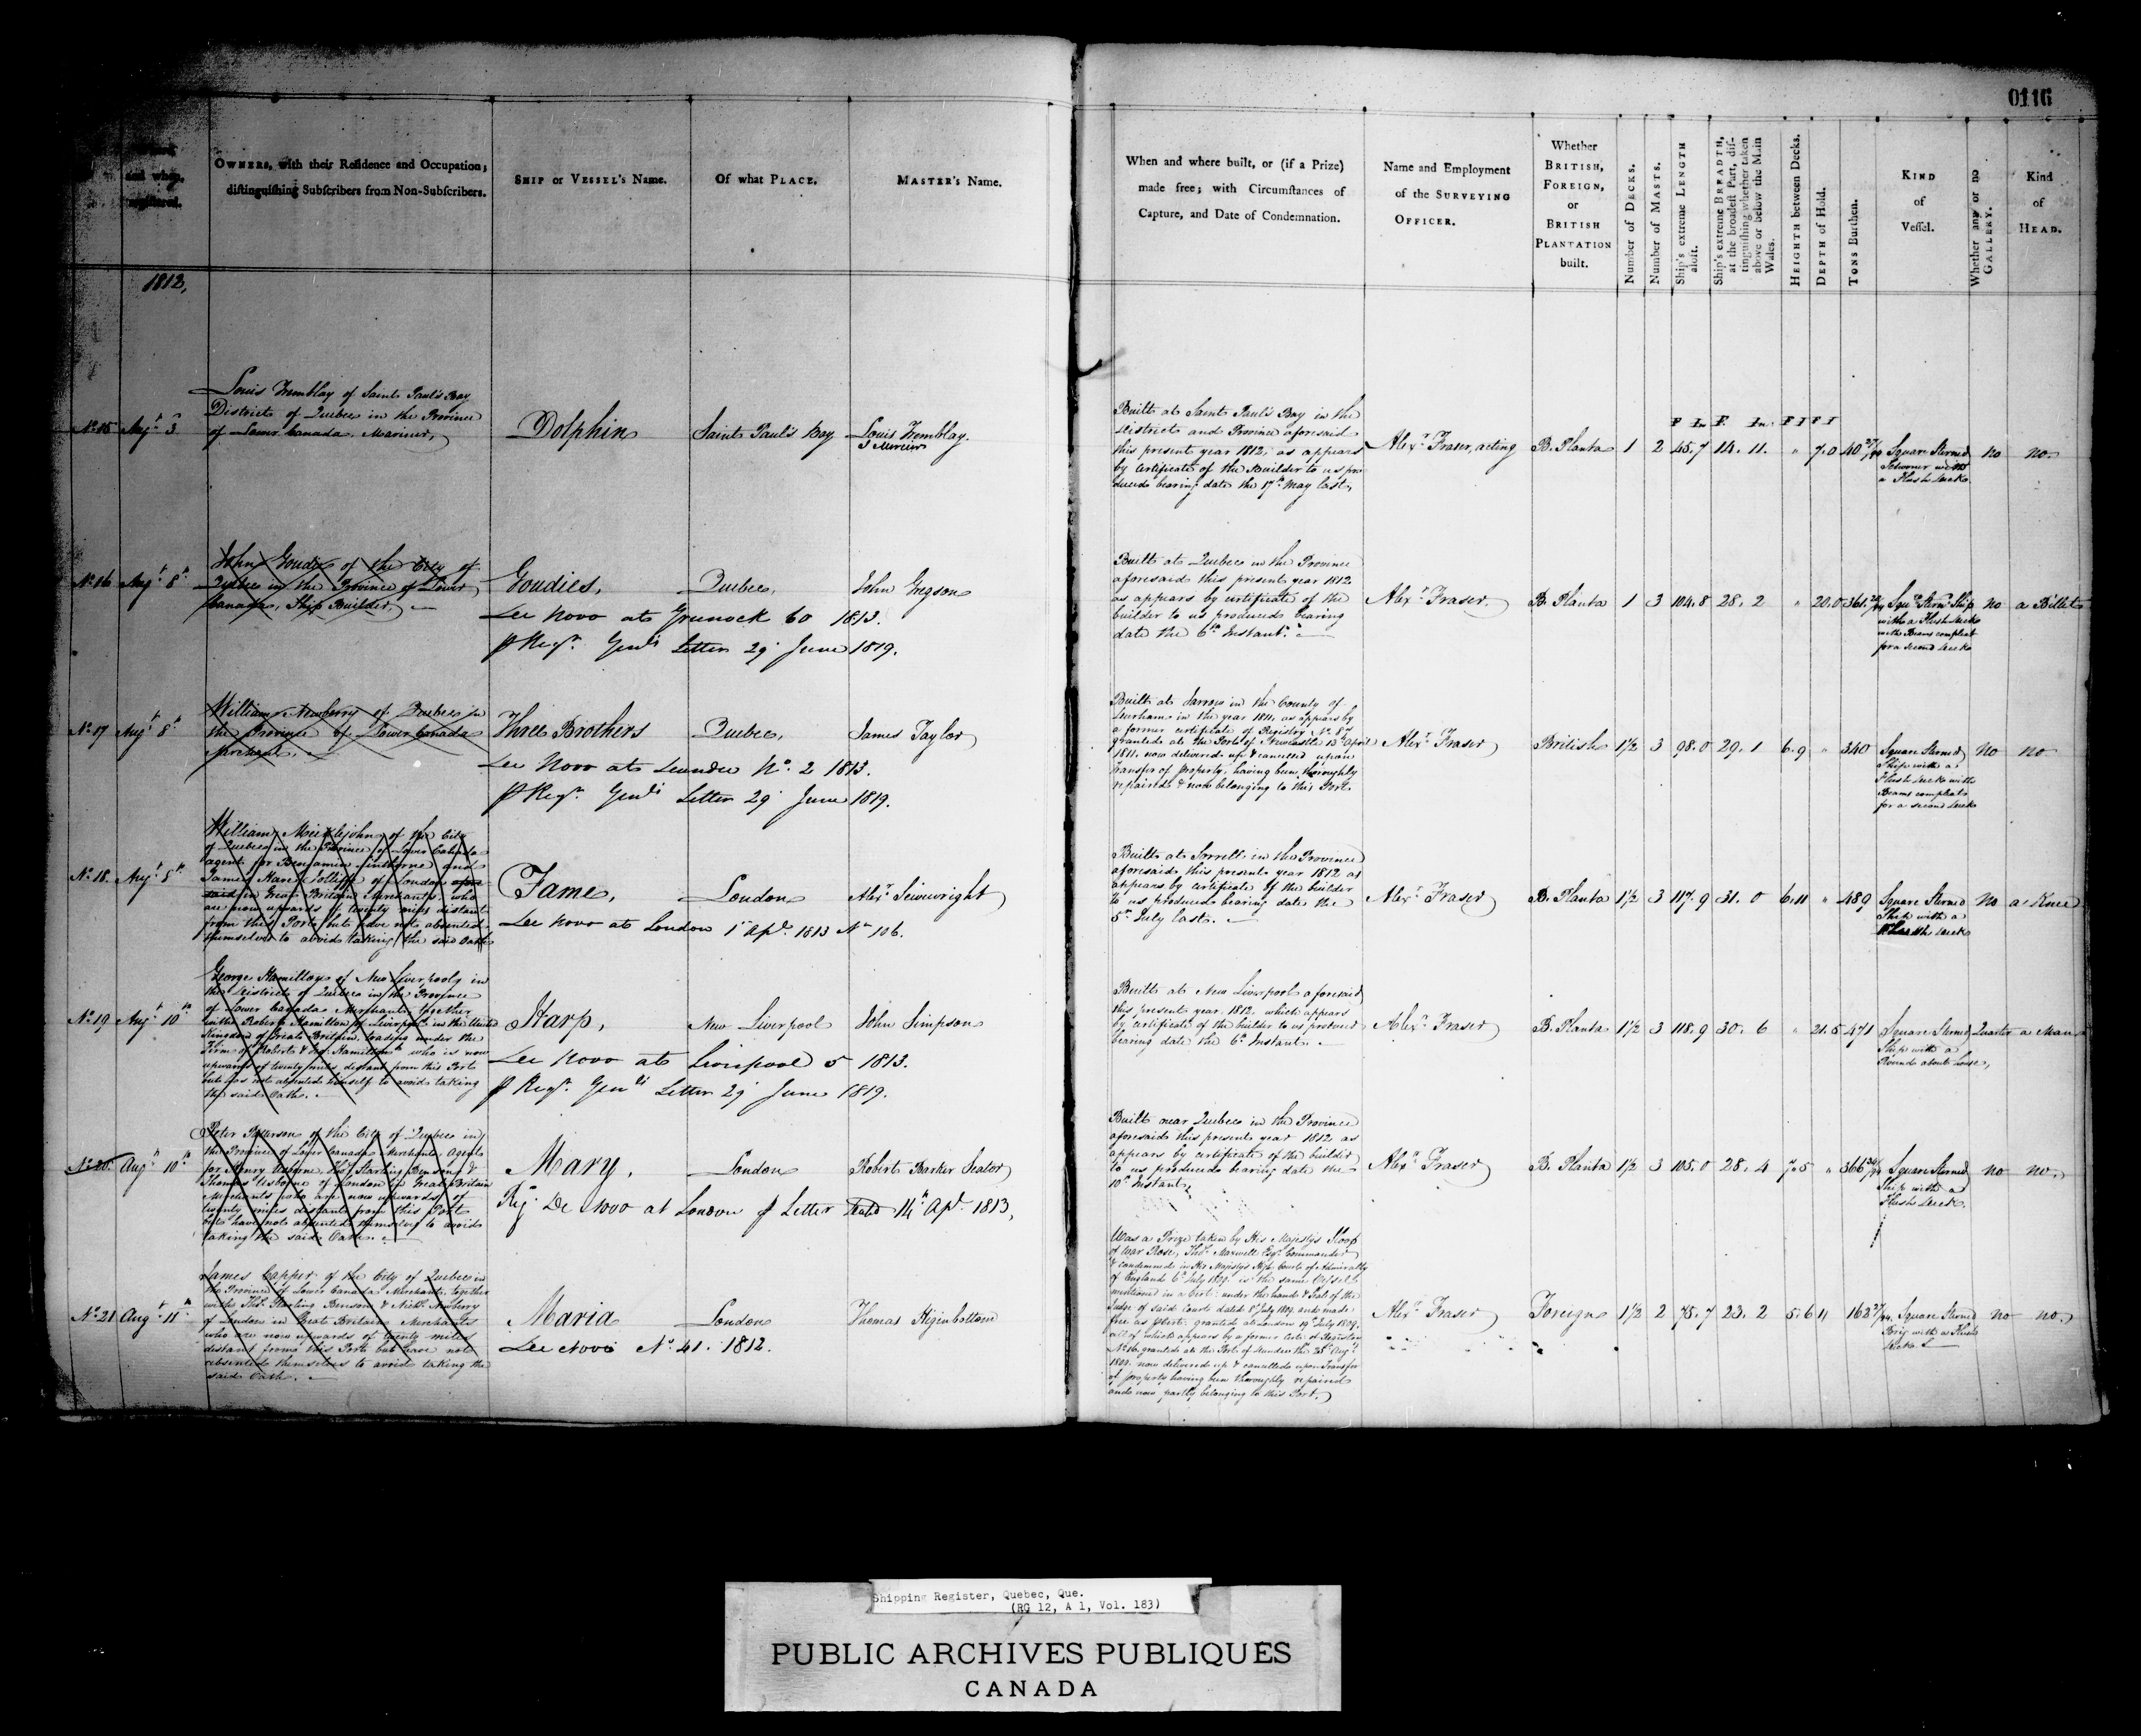 0116
and when
registered.
OWNERS, with their Residence and Occupation;
distinguishing Subscribers from Non-Subscribers.
SHIP or VESSEL's Name.
Of what PLACE.
MASTER's Name.
When and where built, or (if a Prize)
made free; with Circumstances of
Capture, and Date of Condemnation.
Name and Employment
of the SURVEYING
OFFICER.
Whether
BRITISH,
FOREIGN,
or
BRITISH
PLANTATION
built.
Number of DECKS.
Number of MASTS.
Ship's extreme LENGTH
aloft.
Ship's extreme BREADTH,
at the broadest Part, dis-
tinguishing whether taken
above or below the Main
Wales.
HEIGHTH between Decks.
DEPTH of Hold.
TONS Burthen.
KIND
of
Vessel.
Whether any or no
GALLERY.
Kind
of
HEAD.
1812,
No. 15 Augt. 3
Louis Tremblay of Saint Paul's Bay
District of Quebec in the Province
of Lower Canada, Mariner,
Dolphin
Saint Paul's Bay
Louis Tremblay.
Built at Saint Paul's Bay in the
District and Province aforesaid
this present year 1812, as appears
by certificate of the Builder to us pro
duced bearing date the 17th May last,
Alexr. Fraser, acting
B. Planta
F In F. In. F I F I
1 2 45.7 14. 11. " 7.0 40 27/94
Square Sterned
Schooner with
a Flush Deck
no
no
No. 16 Augt. 8th
John Goudie of the City of
Quebec in the Province of Lower
Canada, Ship Builder,
Goudies,
Quebec,
John Gregson
De Novo at Greenock 60 1813.
p Regr. Genls Letter 29 June 1819.
Built at Quebec in the Province
aforesaid this present year 1812
as appears by certificate of the
builder to us produced bearing
date the 6th Instant.
Alexr. Fraser.
B. Planta
1 3 104.8 28. 2 " 20.0 361
Squr. Sternd Ship
with a Flush Deck
with Beams compleat
for a second Deck
no
a Billet
No. 17 Augt. 8th
William Newberry of Quebec in
the Province of Lower Canada
Merchant.
Three Brothers
Quebec,
James Taylor
De Novo at Dundee No. 2 1813.
p Regr. Genls Letter 29 June 1819.
Built at Jarrow in the County of
Durham in the year 1811, as appears by
a former certificate of Registry No. 87
granted at the Port of Newcastle 13th April
1811, now delivered up & cancelled upon
transfer of property, having been thoroughly
repaired & now belonging to this Port.
Alexr. Fraser
British
1½ 3 98.0 29. 1 6.9 " 340
Square Sterned
Ship with a
Flush Deck with
Beams compleat
for a second Deck
no
no
No. 18. Augt. 8th
William Meiklejohn of the City
of Quebec in the Province of Lower Canada
agent for Benjamin Winthrop and
James Hare Jolliffe of London afore
said in Great Britain Merchants who
are now upwards of twenty miles distant
from this Port but have not absented
themselves to avoid taking the said Oath
Fame,
London
Alexr. Seivewright
De Novo at London 1st Apl. 1813 No 106.
Built at Sorrell in the Province
aforesaid this present year 1812 as
appears by certificate of the builder
to us produced bearing date the
5th July last.
Alexr. Fraser
B. Planta
1½ 3 117.9 31. 0 6.11 " 489
Square Sterned
Ship with a
Flush Deck
no
a Knee
No. 19 Augt. 10th
George Hamilton of New Liverpool in
the District of Quebec in the Province
of Lower Canada Merchant, together
with Robert Hamilton of Liverpool in the United
Kingdom of Great Britain trading under the
Firm of Robert & Geo. Hamilton who is now
upwards of twenty miles distant from this Port
but has not absented himself to avoid taking
the said Oath.
Harp,
New Liverpool
John Simpson
De Novo at Liverpool 5 1813.
p Regr. Genls Letter 29 June 1819.
Built at New Liverpool aforesaid
this present year 1812, which appears
by certificate of the builder to us produced
bearing date the 6th Instant.
Alexr. Fraser
B. Planta
1½ 3 118.9 30. 6 " 21.5 471
Square Sterned
Ship with a
Round about house,
Quarter
a Man
No. 20 Augt 10th
Peter Patterson of the City of Quebec in
the Province of Lower Canada Merchant, agent
for Henry Usborne, Thos. Starling Benson &
Thomas Usborne of London in Great Britain
Merchants who are now upwards of
twenty miles distant from this Port
but have not absented themselves to avoid
taking the said Oath.
Mary,
London
Robert Barker Seator
Reg De Novo at London p Letter dated 14th Apl. 1813,
Built near Quebec in the Province
aforesaid this present year 1812 as
appears by certificate of the builder
to us produced bearing date the
10th Instant,
Alexr. Fraser
B. Planta
1½ 3 105.0 28. 4 7.5 " 366
Square Sterned
Ship with a
Flush Deck.
no
no
No. 21 Augt. 11th
James Capper of the City of Quebec in
the Province of Lower Canada Merchant, together
with Thos. Starling Benson & Nichs. Newberry
of London in Great Britain Merchants
who are now upwards of twenty miles
distant from this Port but have not
absented themselves to avoid taking the
said Oath.
Maria
London
Thomas Higinbottom
De Novo No. 41. 1812.
Was a Prize taken by His Majesty's Sloop
of War Rose, Thos. Maxwell Esqr. Commander
& condemned in His Majesty's High Court of Admiralty
of England 6th July 1809 is the same Vessel
mentioned in a Cert. under the hand & Seal of the
Judge of said Court dated 8th July 1809 and made
free as p Cert. granted at London 19th July 1809.
all of which appears by a former Cert. of Registry
No. 16 granted at the Port of Dundee the 25th Augt.
1809 now delivered up & cancelled upon Transfer
of property having been thoroughly repaired
and now partly belonging to this Port.
Alexr. Fraser
Foreign
1½ 2 75.7 23. 2 5.6 11 162
Square Sterned
Brig with a Flush
Deck.
no
no.
Shipping Register, Quebec, Que.
(RG 12, A 1, Vol. 183)
PUBLIC ARCHIVES PUBLIQUES
CANADA